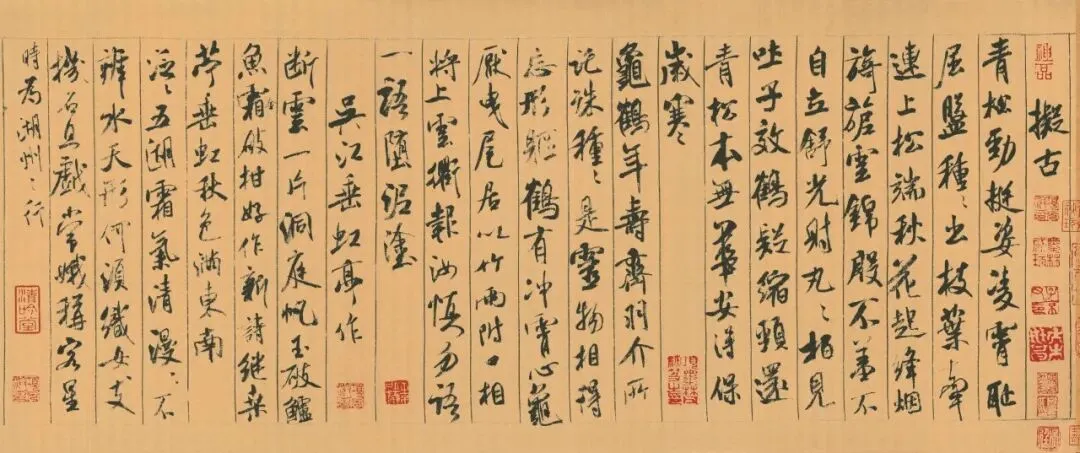 擬古
青松勁挺姿凌霄恥
屈盤種々出枝葉牽
連上松端秋花起絳烟
旖旎雲錦殷不羞不
自立舒光射丸々柏見
吐子效鶴疑縮頸還
青松本無華安得保
歲寒
龜鶴年壽齊羽介所
託殊種々是靈物相得
忘形軀鶴有冲霄心龜
厭曳尾居以竹兩附口相
將上雲衢報汝慎勿語
一語墮泥塗
吳江垂虹亭作
断雲一片洞庭帆玉破鱸
魚霜破柑好作新詩継桑
苧垂虹秋色滿東南
泛々五湖霜氣清漫々不
辨水天形何須織女支
機石且戲常娥稱客星
時為湖州之行
清吟堂